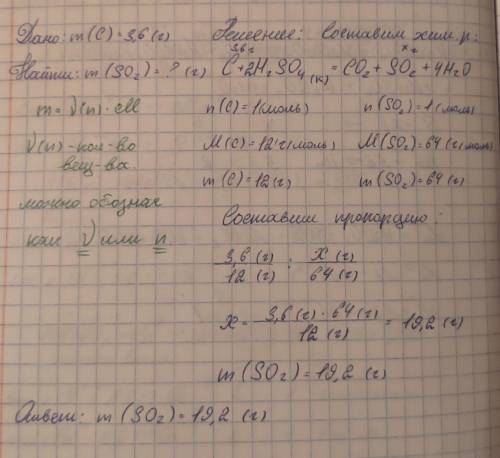 Дано: m(C)=3,6(г)
Найти: m(SO₂)=?(г)
m=ν(n)·M
ν(n)-кол-во
вещ-ва.
можно обознач
как ν или n
Решение: Составим хим.р:
3,6 г x г
C+2H₂SO₄(к)=CO₂+SO₂+4H₂O
n(C)=1(моль) n(SO₂)=1(моль)
M(C)=12(г/моль) M(SO₂)=64(г/моль)
m(C)=12(г) m(SO₂)=64(г)
Составим пропорцию:
3,6(г) : X(г)
12(г) 64(г)
X= 3,6(г)·64(г) =19,2(г)
12(г)
m(SO₂)=19,2(г)
Ответ: m(SO₂)=19,2(г)